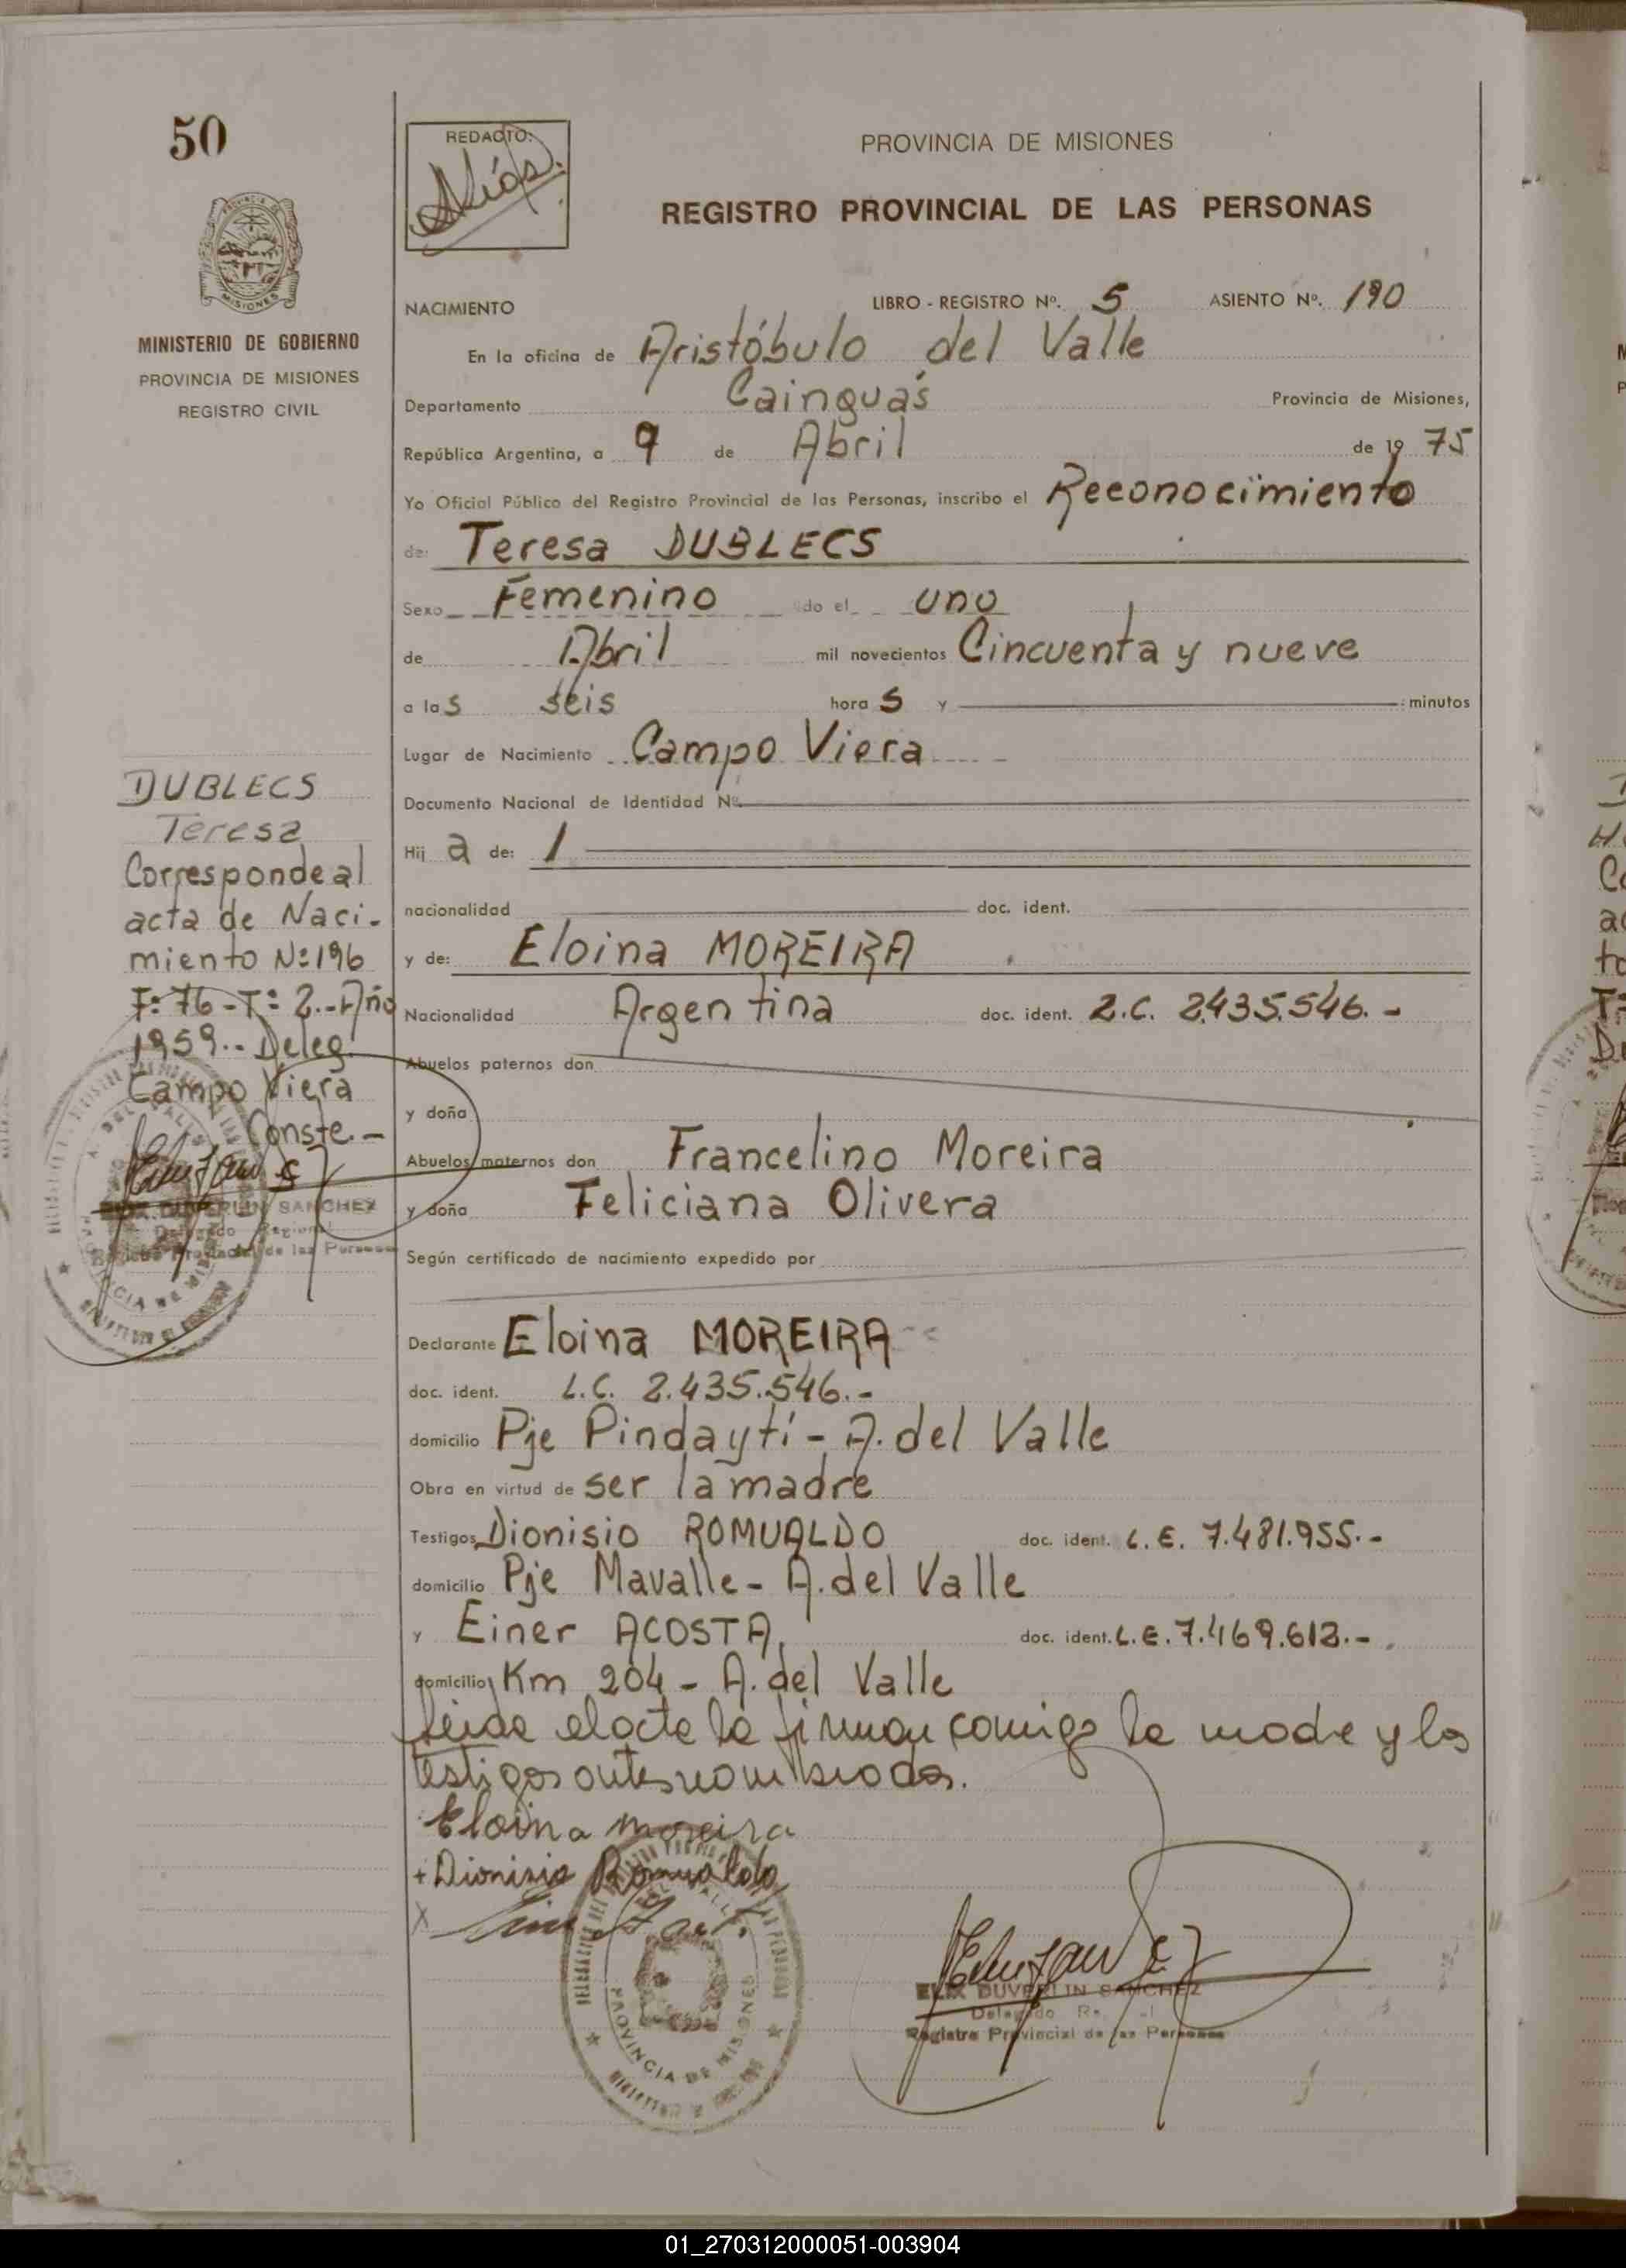 50
REDACTO:
PROVINCIA DE MISIONES
REGISTRO PROVINCIAL DE LAS PERSONAS
MISIONES
MINISTERIO DE GOBIERNO
PROVINCIA DE MISIONES
REGISTRO CIVIL
NACIMIENTO LIBRO - REGISTRO Nº. 5 ASIENTO Nº. 190
En la oficina de Aristóbulo del Valle
Departamento Cainguás Provincia de Misiones,
República Argentina, a 9 de Abril de 19 75
Yo Oficial Público del Registro Provincial de las Personas, inscribo el Reconocimiento
de: Teresa DUBLECS
Sexo Femenino do el uno
de Abril mil novecientos Cincuenta y nueve
a las seis horas y minutos
Lugar de Nacimiento Campo Viera
Documento Nacional de Identidad Nº
Hij a de: /
nacionalidad doc. ident.
y de: Eloina MOREIRA
Nacionalidad Argentina doc. ident. L.C. 2.435.546.-
Abuelos paternos don
y doña
Abuelos maternos don Francelino Moreira
y doña Feliciana Olivera
Según certificado de nacimiento expedido por
Declarante Eloina MOREIRA
doc. ident. L.C. 2.435.546.-
domicilio Pje Pindaytí - A. del Valle
Obra en virtud de ser la madre
Testigos Dionisio ROMUALDO doc. ident. L.E. 7.481.955.-
domicilio Pje Mavalle - A. del Valle
y Einer ACOSTA, doc. ident. L.E. 7.469.613.-
domicilio Km 204 - A. del Valle
Leida el acta la firman conmigo la madre y los
testigos antes nombrados.
Eloina moreira
+ Dionisio Romualdo
X
ELIX DUVERLIN SANCHEZ
Delegado
Registro Provincial de las Personas
PROVINCIA DE MISIONES
DUBLECS
Teresa
Corresponde al
acta de Naci-
miento Nº 196
Fº 76 - Tº 2.- Año
1959.- Deleg.
Campo Viera
Conste.-
DUVERLIN SANCHEZ
Delegado Regional
Registro Provincial de las Personas
01_270312000051-003904